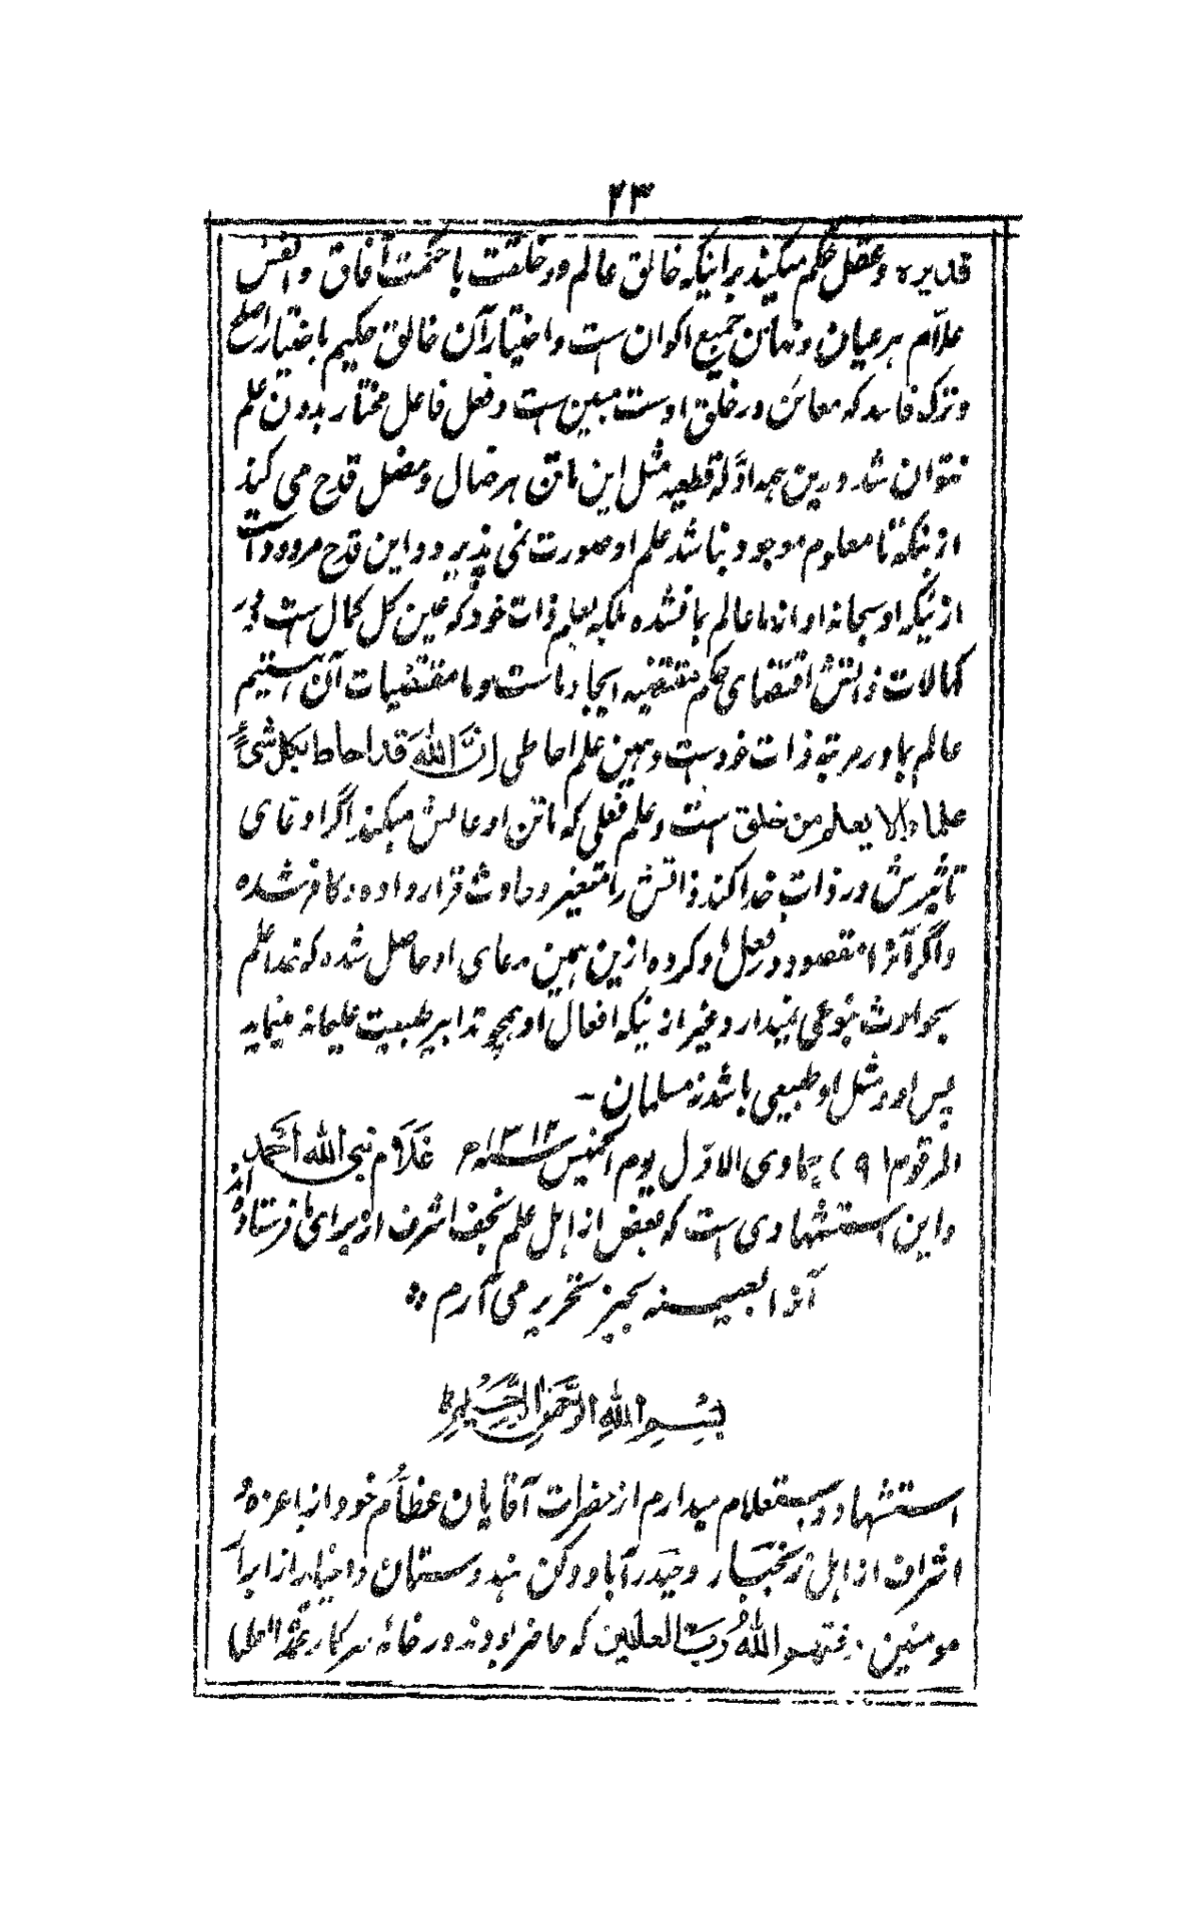 ۲۳
قدیره و عقل حکم میکند برانیکه خالق عالم در خلقت با حکمت آفاق و انفس
علّام هر عیان و نهان جمیع اکوان است و اختیار آن خالق حکیم باختیار اصلح
و ترک فاسد که معاین در خلق اوست مبین است و فعل فاعل مختار بدون علم
نتوان شد و درین همه ادلّه قطعیه مثل این ماتن هر ضال و مضل قدح می کند
از ینکه تا معلوم موجود نباشد علم او صورت نمی پذیرد و این قدح مردود است
از نیکه او سبحانه او انا ما عالم بافشده بلکه بعلم ذات خود که عین کل کمال است و در
کمالات ذاتش اقتضای حکم مقتضیه ایجاد ماست و ما مقتضیات آن هستیم
عالم بما در مرتبه ذات خودست و همین علم احاطی ان الله قد احاط بکل شیءٍ
علما و الا یعلم من خلق است و علم فعلی که ماتن او عالمش میکند اگر ادعای
تاثیرش در ذات خدا کند ذاتش را متغیر و حادث قرار داده و کافر شده
و اگر آنرا مقصود در فعل او کرده ازین همین مدعای او حاصل شده که خدا علم
بحوادث بنوعی نمیدارد و غیر از نیکه افعال او همچو تدابیر طبیعت علیمانه مینماید
پس او و مثل او طبیعی باشد نه مسلمان -
المرقوم ۱۹) جماوی الاوّل یوم الخمیس سنه ۱۳۱۲ ھ غلام نبی الله احمد
و این استشهادی است که بعض از اهل علم نجف اشرف از برای ما فرستاده اند
آنرا بعینه بحیز تحریر می آرم
بسم الله الرحمن الرحیم
استشهاد و استعلام میدارم از حضرات آقایان عظام خود از اعزه و
اشراف از اهل زنجبار و حیدرآباد دکن هندوستان و اخیار از ابرار
مومنین فتهم الله رب العلمین که حاضر بودند در خانه سرکار حجة العلما